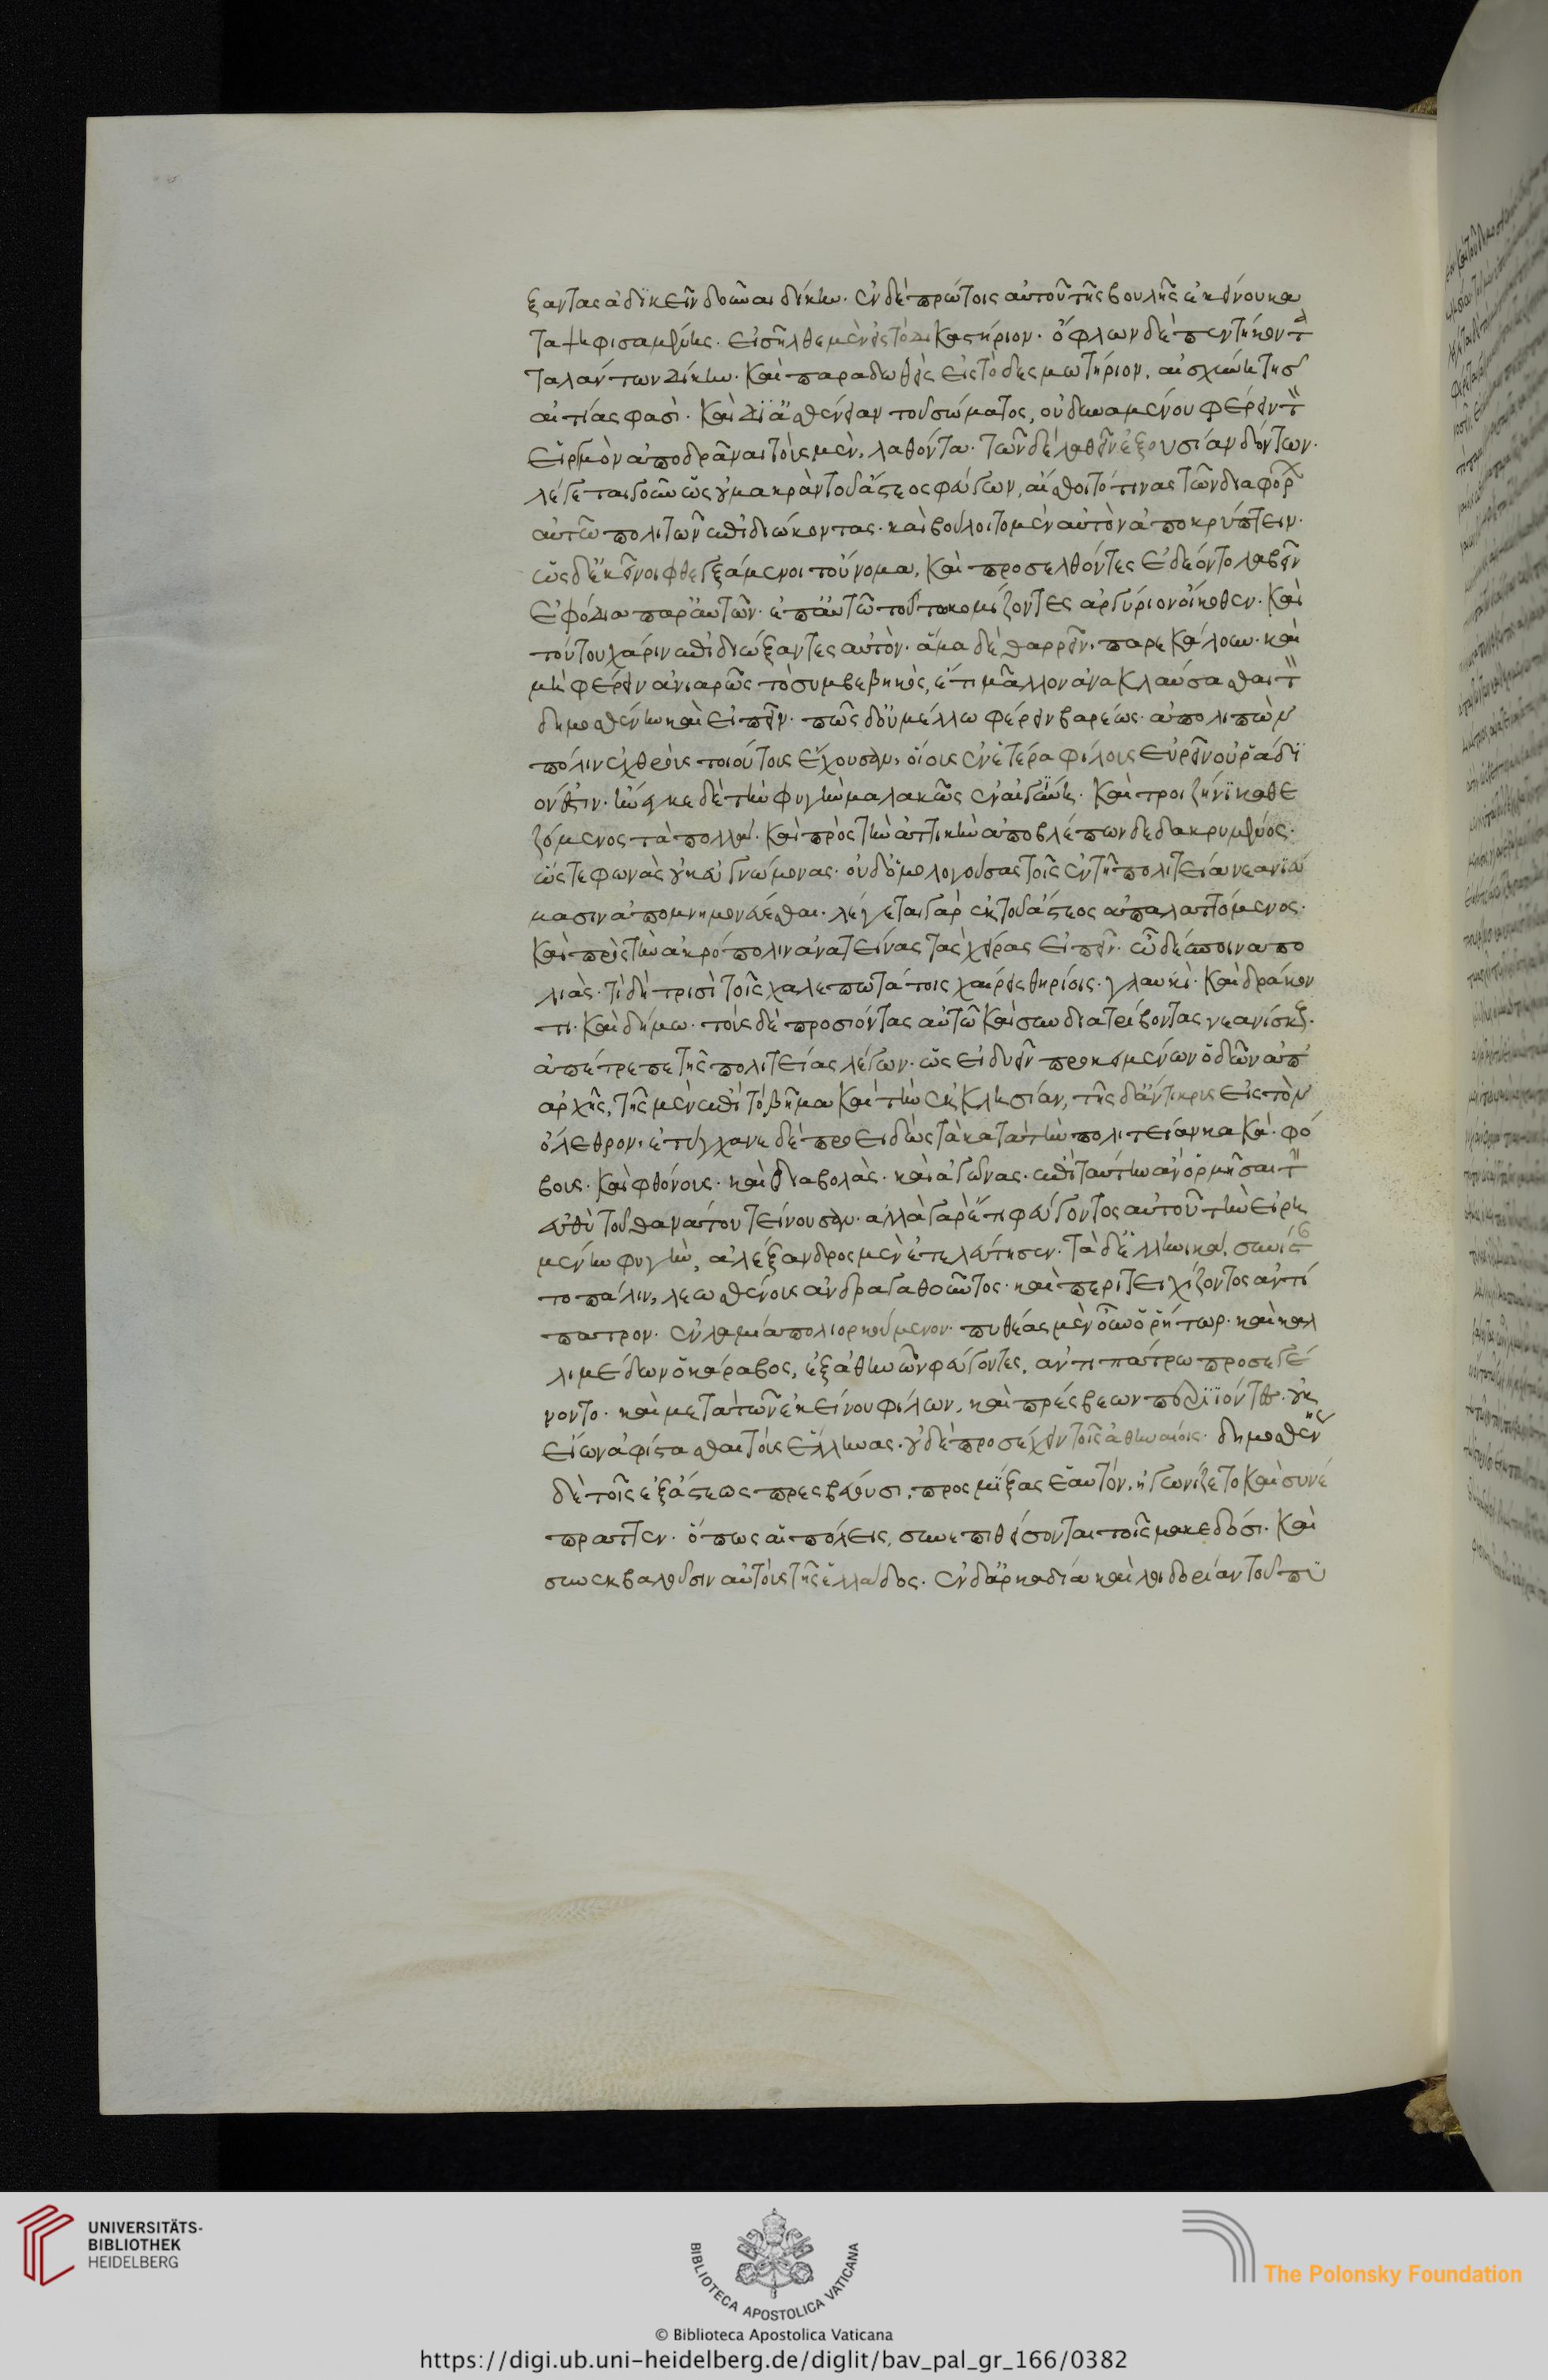 ξαντας ἀδικεῖν δοῦναι δίκην· ἐν δὲ πρώτοις αὐτοῦ τῆς βουλῆς ἐκείνου κα
ταψηφισαμένης· εἰσῆλθε μὲν εἰς τὸ δικαστήριον· ὄφλων δὲ πεντήκοντα
ταλάντων δίκην· καὶ παραδωθεὶς εἰς τὸ δεσμωτήριον, αἰσχύνη τῆς
αἰτίας φασὶ· καὶ δι' ἀσθένειαν τοῦ σώματος, οὐ δυναμένου φέρειν τὸν
εἱρμὸν ἀποδρᾶναι τοὺς μὲν, λαθόντα· τῶν δὲ λαθεῖν ἐξουσίαν δόντων·
λέγεται γοῦν ὡς οὐ μακρὰν τοῦ ἄστεος φεύγων, αἴσθοιτό τινας τῶν διαφόρων
αὐτῶ πολιτῶν ἐπιδιώκοντας· καὶ βούλοιτο μὲν αὑτὸν ἀποκρύπτειν·
ὡς δ' ἐκεῖνοι φθεγξάμενοι τοὔνομα, καὶ προσελθόντες ἐδέοντο λαβεῖν
ἐφόδια παρ' αὐτῶν· ἐπ' αὐτῶ τοῦτο κομίζοντες ἀργύριον οἴκοθεν· καὶ
τούτου χάριν ἐπιδιώξαντες αὐτὸν· ἅμα δὲ θαρρεῖν, παρεκάλουν· καὶ
μὴ φέρειν ἀνιαρῶς τὸ συμβεβηκὸς, ἔτι μᾶλλον ἀνακλαύσασθαι τὸν
δημοσθένην καὶ εἰπεῖν· πῶς δ' οὐ μέλλω φέρειν βαρέως· ἀπολιπὼν
πόλιν ἐχθροὺς τοιούτους ἔχουσαν, οἵους ἐν ἑτέρα φίλους εὑρεῖν οὐ ῥάδι
όν ἐστιν· ἤνεγκε δὲ τὴν φυγὴν μαλακῶς ἐν αἰγίνη· καὶ τροιζῆνι καθε
ζόμενος τὰ πολλὰ· καὶ πρὸς τὴν ἀττικὴν ἀποβλέπων δεδακρυμένος·
ὥστε φωνὰς οὐκ εὐγνώμονας· οὐδ' ὁμολογούσας τοῖς ἐν τῆ πολιτεία νεανιεύ
μασιν ἀπομνημονεύεσθαι· λέγεται γὰρ ἐκ τοῦ ἄστεος ἀπαλαττόμενος·
καὶ πρὸς τὴν ἀκρόπολιν ἀνατείνας τὰς χεῖρας εἰπεῖν· ὦ δέσποινα πο
λιὰς· τί δὴ τρισὶ τοῖς χαλεπωτάτοις χαίρεις θηρίοις· γλαυκὶ· καὶ δράκον
τι· καὶ δήμω· τοὺς δὲ προσιόντας αὐτῶ καὶ συνδιατρίβοντας νεανίσκους·
ἀπέτρεπε τῆς πολιτείας λέγων· ὡς εἰ δυεῖν προκειμένων ὁδῶν ἀπ'
ἀρχῆς, τῆς μὲν ἐπὶ τὸ βῆμα καὶ τὴν ἐκκλησίαν, τῆς δ' ἄντικρυς εἰς τὸν
ὄλεθρον, ἐτύγχανε δὲ προειδὼς τὰ κατὰ τὴν πολιτείαν κακὰ· φό
βους· καὶ φθόνους· καὶ διαβολὰς· καὶ ἀγῶνας· ἐπὶ ταύτην ἂν ὁρμῆσαι τὴν
εὐθὺ τοῦ θανάτου τείνουσαν· ἀλλὰ γὰρ ἔτι φεύγοντος αὐτοῦ τὴν εἰρη
μένην φυγὴν, ἀλέξανδρος μὲν ἐτελεύτησεν· τὰ δ' ἑλληνικὰ, συνίστα
το πάλιν, λεωσθένους ἀνδραγαθοῦντος· καὶ περιτειχίζοντος ἀντί
πατρον· ἐν λαμία πολιορκούμενον· πυθέας μὲν οὖν ὁ ῥήτωρ· καὶ καλ
λιμέδων ὁ κάραβος, ἐξ ἀθηνῶν φεύγοντες, ἀντιπάτρω προσεγέ
νοντο· καὶ μετὰ τῶν ἐκείνου φίλων, καὶ πρέσβεων περιϊόντες· οὐκ
εἴων ἀφίστασθαι τοὺς ἕλληνας· οὐδὲ προσέχειν τοῖς ἀθηναίοις· δημοσθένης
δὲ τοῖς ἐξ ἄστεως πρεσβεύουσι, προσμίξας ἑαυτὸν, ἠγωνίζετο καὶ συνέ
πραττεν· ὅπως αἱ πόλεις, συνεπιθήσονται τοῖς μακεδόσι· καὶ
συνεκβαλοῦσιν αὐτοὺς τῆς ἑλλάδος· ἐν δ' ἀρκαδία καὶ λοιδορίαν τοῦ πυ
UNIVERSITÄTS-
BIBLIOTHEK
HEIDELBERG
BIBLIOTECA APOSTOLICA VATICANA
The Polonsky Foundation
© Biblioteca Apostolica Vaticana
https://digi.ub.uni-heidelberg.de/diglit/bav_pal_gr_166/0382